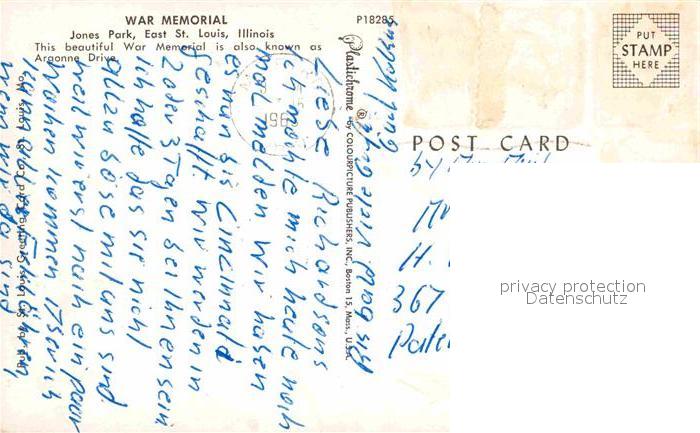 WAR MEMORIAL
Jones Park, East St. Louis, Illinois
This beautiful War Memorial is also known as
Argonne Drive.
P18285
Plastichrome ® by COLOURPICTURE PUBLISHERS, INC., Boston 15, Mass., U.S.A.
Pub. by St. Louis Greeting Card Co., St. Louis, Mo.
PUT
STAMP
HERE
POST CARD
Liebe Richardsons
Ich möchte mich heute noch
mal melden Wir haben
es nun bis Cincinnati
geschafft. Wir werden in
2 oder 3 Tagen bei Ihnen sein
Ich hoffe das sie nicht
allzu böse mit uns sind
weil wir erst nach ein paar
Wochen kommen
wenn wir da sind
Bis bald Viele Grüße
By Air Mail
H.
367
privacy protection
Datenschutz